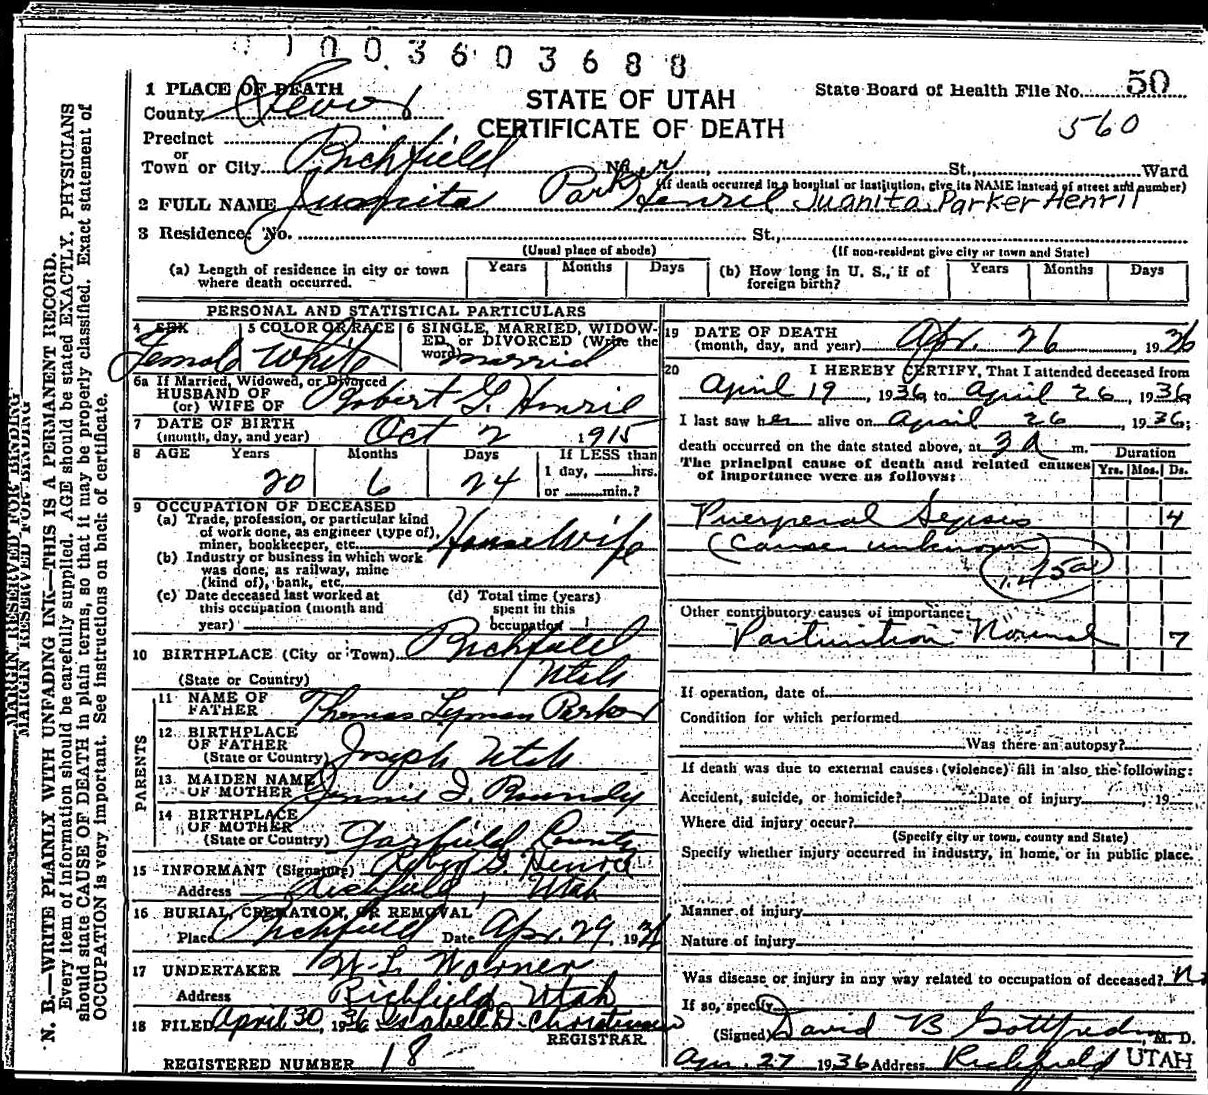 01003603688
1 PLACE OF DEATH
County Sevier
STATE OF UTAH
CERTIFICATE OF DEATH
State Board of Health File No. 50
560
Precinct
or
Town or City Richfield No. , St., Ward
(If death occurred in a hospital or institution, give its NAME instead of street and number)
2 FULL NAME Juanita Parker Henril Juanita Parker Henril
3 Residence: No. St.,
(Usual place of abode) (If non-resident give city or town and State)
(a) Length of residence in city or town where death occurred. Years Months Days (b) How long in U. S., if of foreign birth? Years Months Days
PERSONAL AND STATISTICAL PARTICULARS
4 SEX 5 COLOR OR RACE 6 SINGLE, MARRIED, WIDOWED, or DIVORCED (Write the word)
Female White married
6a If Married, Widowed, or Divorced
HUSBAND OF
(or) WIFE OF Robert G. Henril
7 DATE OF BIRTH
(month, day, and year) Oct 2 1915
8 AGE Years Months Days If LESS than
1 day, hrs.
20 6 24 or min.?
9 OCCUPATION OF DECEASED
(a) Trade, profession, or particular kind
of work done, as engineer (type of),
miner, bookkeeper, etc. House Wife
(b) Industry or business in which work
was done, as railway, mine
(kind of), bank, etc.
(c) Date deceased last worked at
this occupation (month and
year)
(d) Total time (years)
spent in this
occupation
10 BIRTHPLACE (City or Town) Richfield
(State or Country) Utah
PARENTS
11 NAME OF
FATHER Thomas Lyman Parker
12 BIRTHPLACE
OF FATHER
(State or Country) Joseph Utah
13 MAIDEN NAME
OF MOTHER Jennie I. Bundy
14 BIRTHPLACE
OF MOTHER
(State or Country) Garfield County
15 INFORMANT (Signature) Robert G. Henril
Address Richfield, Utah
16 BURIAL, CREMATION, OR REMOVAL
Place Richfield Date Apr. 29 1936
17 UNDERTAKER W. L. Warner
Address Richfield Utah
18 FILED April 30, 1936 Isabell D. Christensen
REGISTRAR
REGISTERED NUMBER 18
19 DATE OF DEATH
(month, day, and year) Apr. 26, 1936
20 I HEREBY CERTIFY, That I attended deceased from
April 19, 1936, to April 26, 1936
I last saw her alive on April 26, 1936;
death occurred on the date stated above, at 3 A m.
The principal cause of death and related causes
of importance were as follows:
Duration
Yrs. Mos. Ds.
Puerperal Sepsis 4
(Cause unknown)
145a
Other contributory causes of importance:
Parturition - Normal 7
If operation, date of
Condition for which performed
Was there an autopsy?
If death was due to external causes (violence) fill in also the following:
Accident, suicide, or homicide? Date of injury , 19
Where did injury occur?
(Specify city or town, county and State)
Specify whether injury occurred in industry, in home, or in public place.
Manner of injury
Nature of injury
Was disease or injury in any way related to occupation of deceased? No
If so, specify
(Signed) David B Gottfredson, M. D.
Apr. 27 1936 Address Richfield UTAH
MARGIN RESERVED FOR BINDING
MARGIN RESERVED FOR BINDING
N. B.—WRITE PLAINLY WITH UNFADING INK—THIS IS A PERMANENT RECORD.
Every item of information should be carefully supplied. AGE should be stated EXACTLY. PHYSICIANS
should state CAUSE OF DEATH in plain terms, so that it may be properly classified. Exact statement of
OCCUPATION is very important. See instructions on back of certificate.